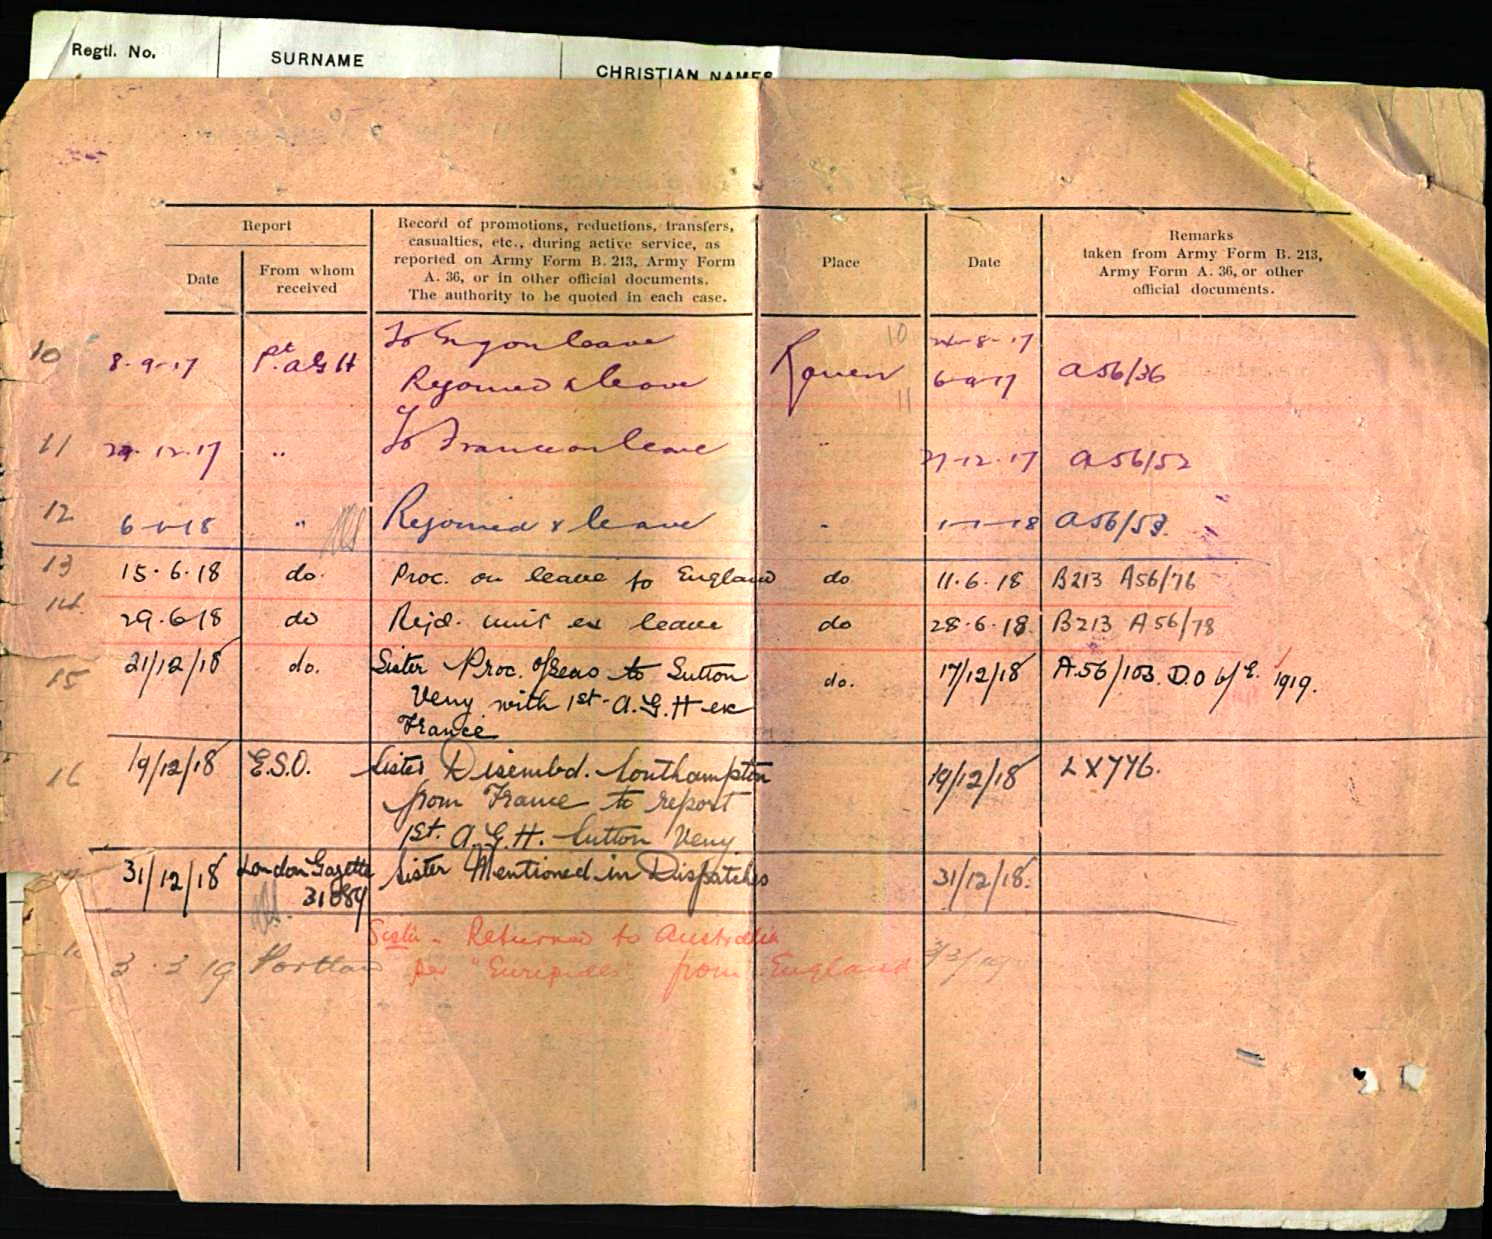 Regtl. No. SURNAME CHRISTIAN NAMES
Report
Date
From whom received
Record of promotions, reductions, transfers, casualties, etc., during active service, as reported on Army Form B. 213, Army Form A. 36, or in other official documents. The authority to be quoted in each case.
Place
Date
Remarks taken from Army Form B. 213, Army Form A. 36, or other official documents.
10 To Eng on leave 10 24-8-17
8-9-17 1st AGH Rejoined x leave Rouen 6-9-17 A56/36
11
11 29-12-17 " To France on leave " 27-12-17 A56/52
12 6-1-18 " Rejoined x leave " 1-1-18 A56/53.
13 15.6.18 do. Proc. on leave to England do 11.6.18 B213 A56/76
14 29.6.18 do Rejd. unit ex leave do 28.6.18. B213 A56/78
15 21/12/18 do. Sister Proc. O/Seas to Sutton do. 17/12/18 A.56/103. D.O 6/E. 1919.
Veny with 1st A.G.H ex
France
16 19/12/18 E.S.O. Sister Disembd. Southampton 19/12/18 LX776.
from France to report
1st. A.G.H. Sutton Veny.
31/12/18 London Gazette Sister Mentioned in Dispatches 31/12/18.
31089
Sister. Returned to Australia
3.3.19 per "Euripides" from England 3/3/19